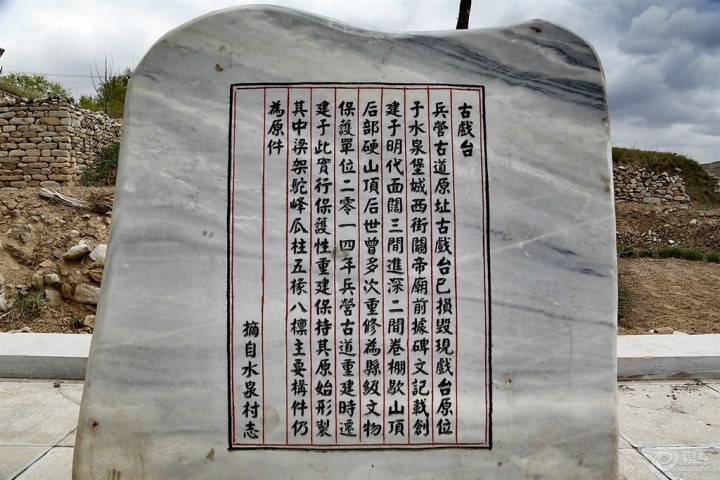 古戲台
兵營古道原址古戲台已損毀現戲台原位
于水泉堡城西街關帝廟前據碑文記載創
建于明代面闊三間進深二間卷棚歇山頂
后部硬山頂后世曾多次重修為縣級文物
保護單位二零一四年兵營古道重建時遷
建于此實行保護性重建保持其原始形製
其中梁架駝峰瓜柱五椽八檁主要構件仍
為原件
摘自水泉村志
易车